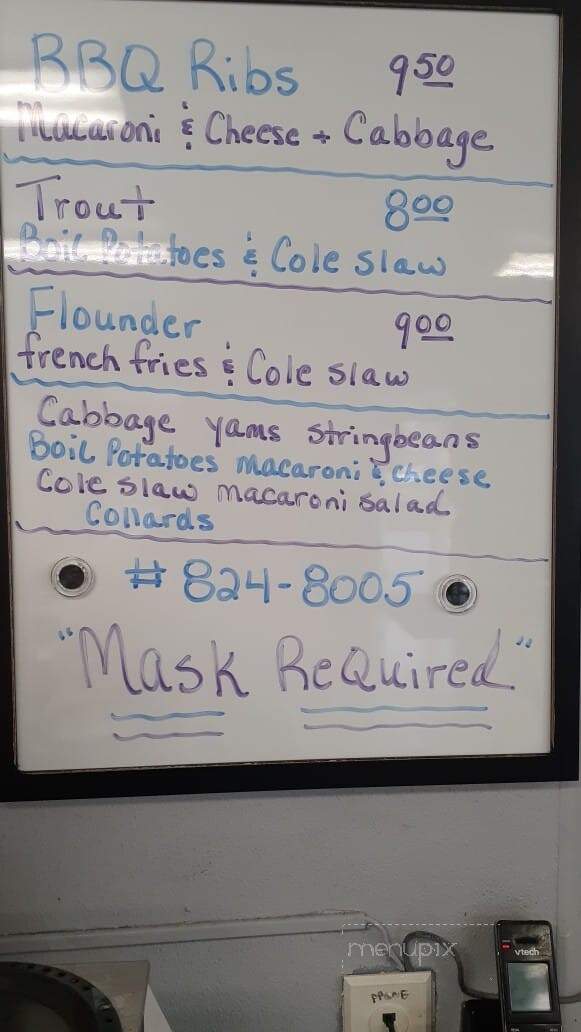 BBQ Ribs 9 50
Macaroni & Cheese + Cabbage
Trout 8 00
Boil Potatoes & Cole slaw
Flounder 9 00
french fries & Cole slaw
Cabbage yams stringbeans
Boil Potatoes macaroni & cheese
Cole slaw macaroni salad
Collards
# 824-8005
"Mask ReQuired"
menupix
vtech
PHONE